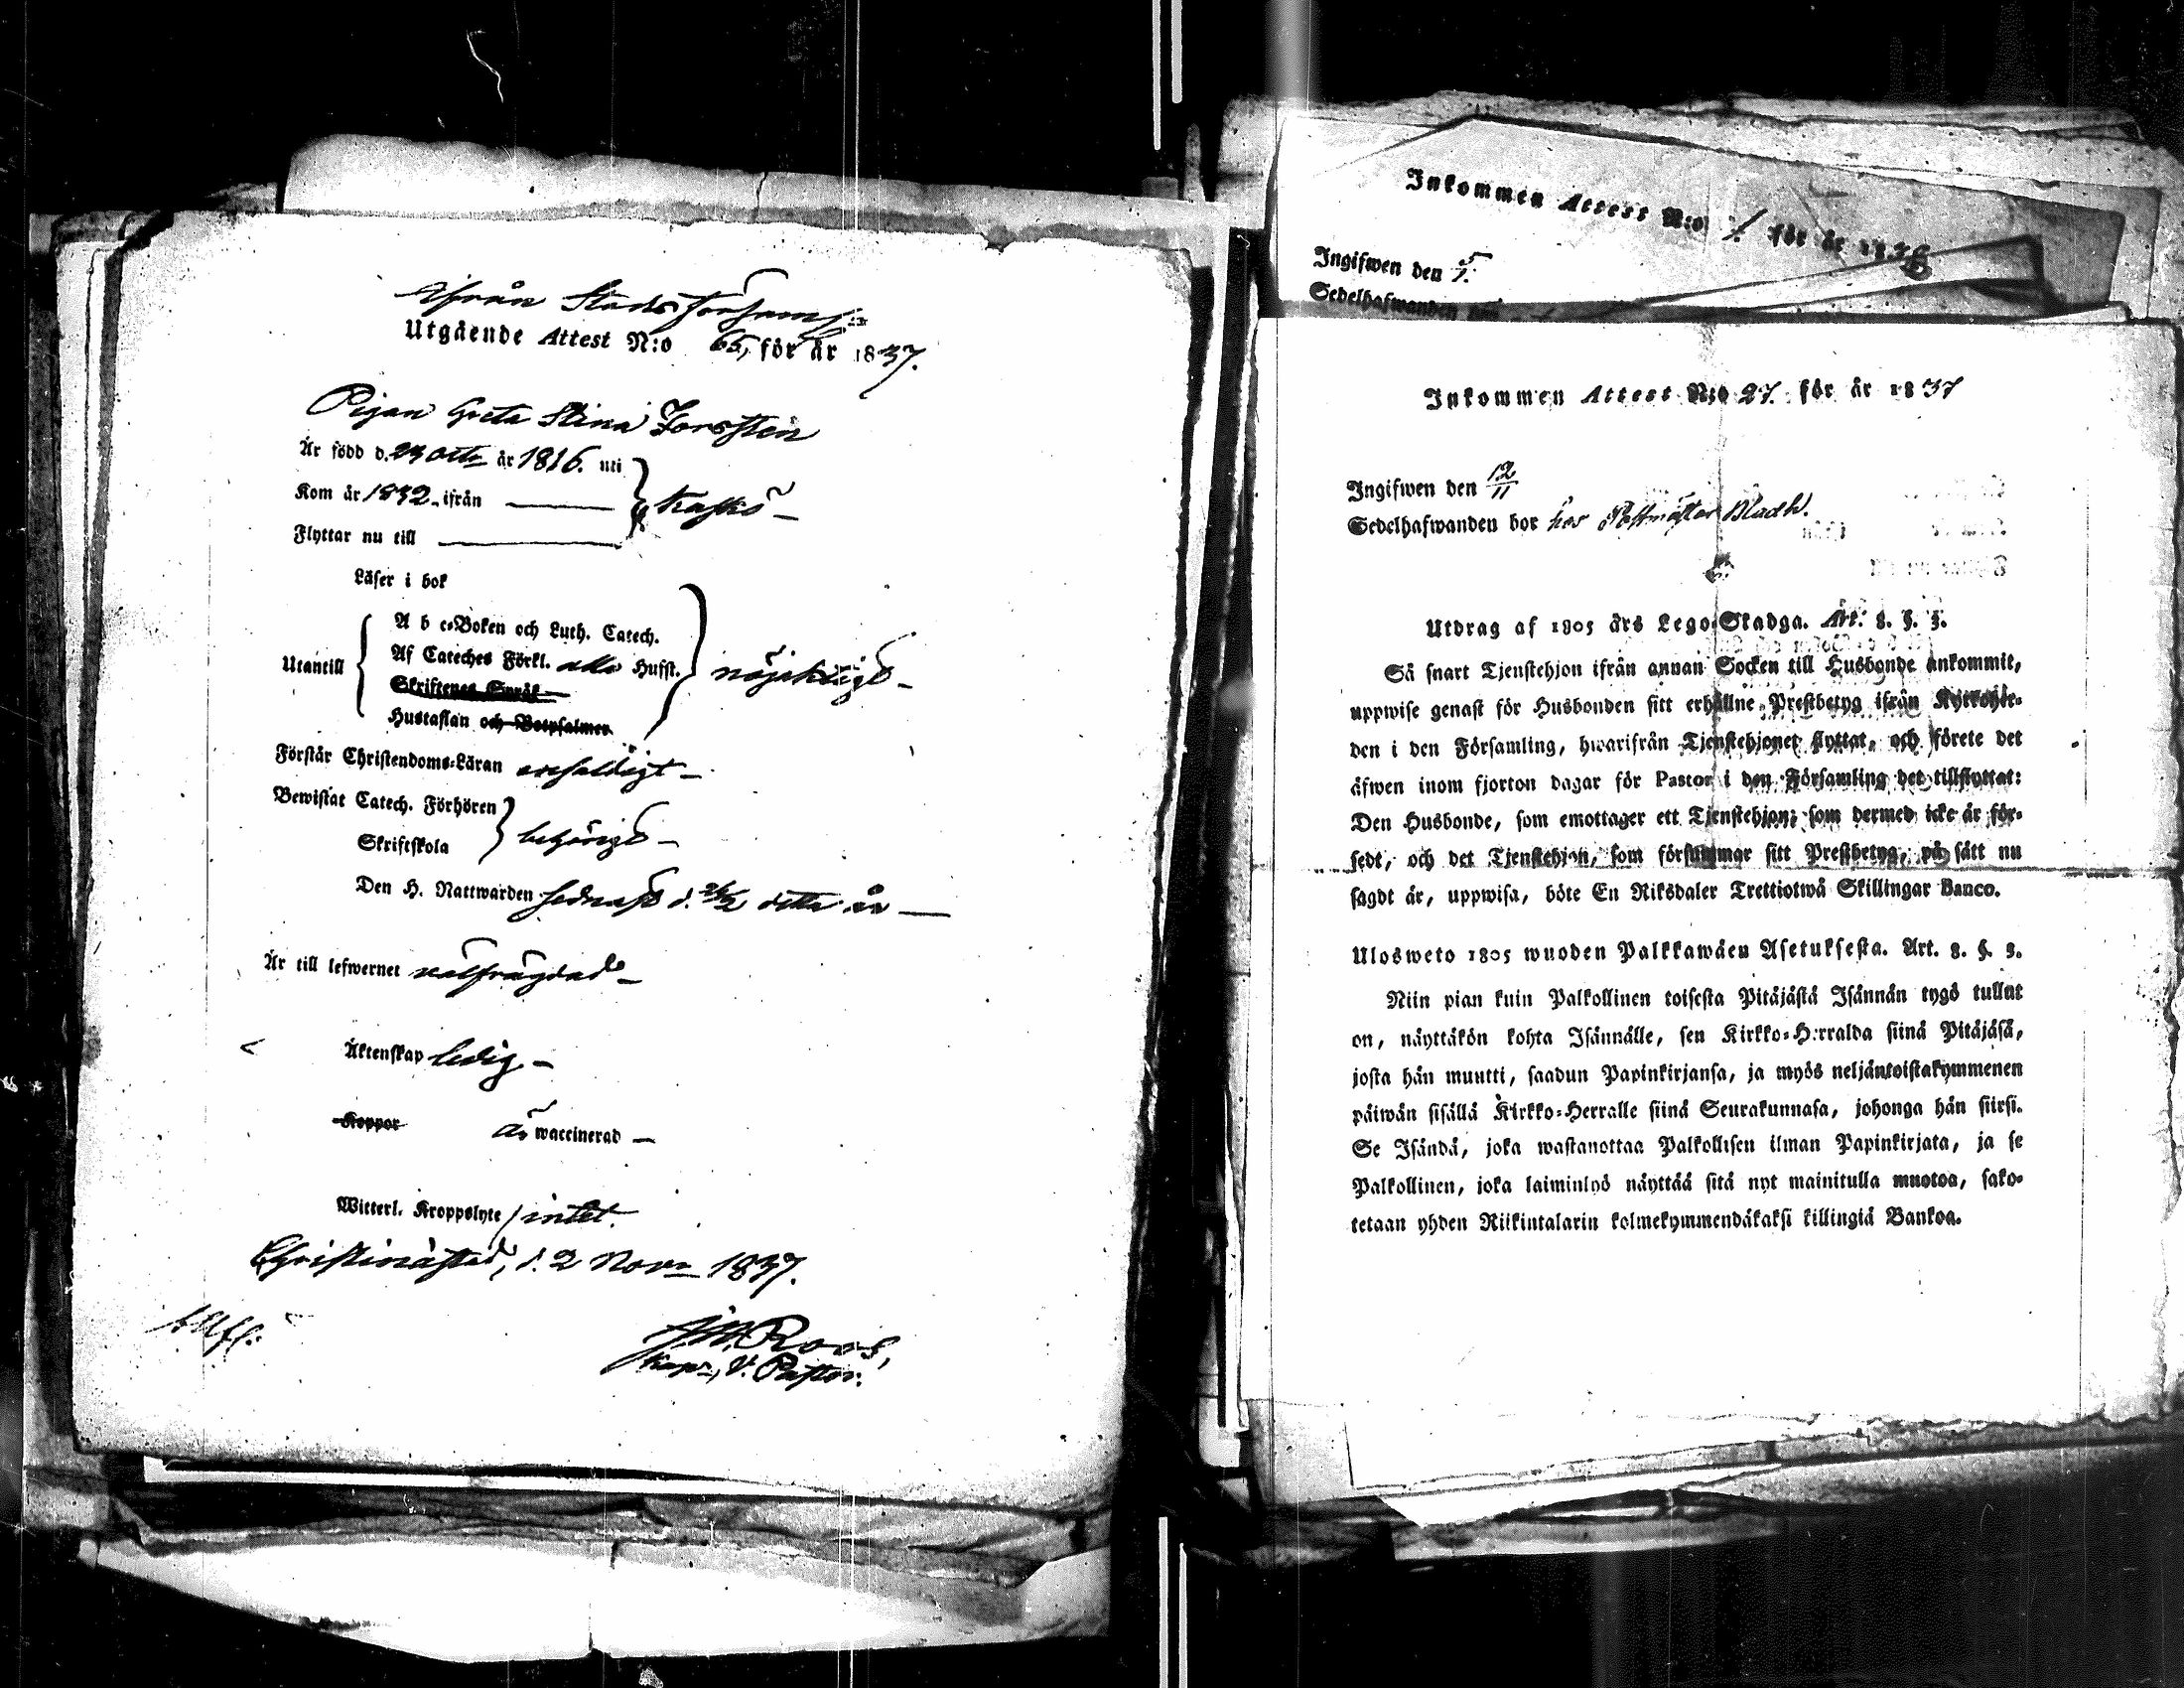 ifrån Stads församl:
Utgående Attest N:o 65, för år 1837.
Pigan Greta Stina Forsstén
Är född d. 29 octr år 1816. uti
Kom år 1832. ifrån
Kaskö
Flyttar nu till
Läser i bok
Utantill
A b c-Boken och Luth. Catech.
Af Cateches Förkl. alla Hufst.
Skriftenes Språk
Hustaflan och Botpsalmer
nöjaktigt
Förstår Christendoms-Läran enfaldigt
Bewistat Catech. Förhören
Skriftskola
behörigt
Den H. Nattwarden sednast d. detta år
Är till lefwernet välfrägdad
Äktenskap ledig
Koppor är waccinerad
Witterl. Kroppslyte / intet.
Christinæstad, d. 2 Novr 1837.
Roos,
Kapn, V. Pastor.
Inkommen Attest N:o 1 för år 1836
Ingifwen den
Sedelhafwanden bor
Inkommen Attest N:o 27. för år 1837
Ingifwen den 12/11
Sedelhafwanden bor hos Postmästar Bladh.
Utdrag af 1805 års Lego-Stadga. Art. 8. §. 3.
Så snart Tjenstehjon ifrån annan Socken till Husbonde ankommit,
uppwise genast för Husbonden sitt erhållne Prestbetyg ifrån Kyrkoher-
den i den Församling, hwarifrån Tjenstehjonet flyttat, och förete det
äfwen inom fjorton dagar för Pastor i den Församling det tillflyttat:
Den Husbonde, som emottager ett Tjenstehjon; som dermed icke är för-
sedt, och det Tjenstehjon, som försummar sitt Prestbetyg, på sätt nu
sagdt är, uppwisa, böte En Riksdaler Trettiotwå Skillingar Banco.
Ulosweto 1805 wuoden Palkkawäen Asetuksesta. Art. 8. §. 3.
Niin pian kuin Palkollinen toisesta Pitäjästä Isännän tygö tullut
on, näyttäkön kohta Isännälle, sen Kirkko-Herralda siinä Pitäjäsä,
josta hän muutti, saadun Papinkirjansa, ja myös neljäntoistakymmenen
päiwän sisällä Kirkko-Herralle siinä Seurakunnasa, johonga hän siirsi.
Se Isändä, joka wastanottaa Palkollisen ilman Papinkirjata, ja se
Palkollinen, joka laiminlyö näyttää sitä nyt mainitulla muotoa, sako-
tetaan yhden Riikintalarin kolmekymmendäkaksi killingiä Bankoa.